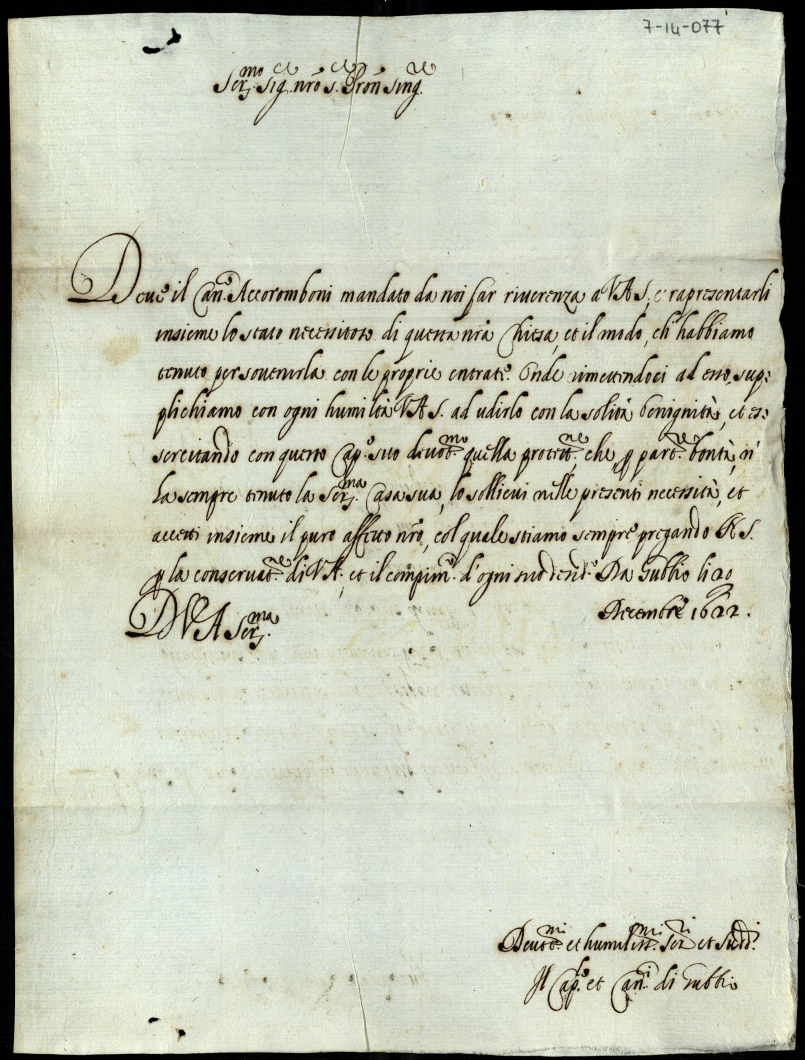 7-14-077
Ser.mo Sig.re nro s. Pron Sing.re
Deue il Can.co Accoromboni mandato da noi far riuerenza a V A S. e rapresentarli
insieme lo stato necessitoso di questa nra Chiesa, et il modo, ch' habbiamo
tenuto per souenirla con le proprie entrate. Onde rimettendoci al esso, sup=
plichiamo con ogni humiltà V A S. ad udirlo con la solita benignità, et es=
sercitando con questo Cap.o suo deuot.mo quella protett.ne, che p part.re bontà, n'
ha sempre tenuto la Ser.ma Casa sua, lo solleui nelle presenti necessità, et
accetti insieme il puro affetto nro, col quale stiamo sempre pregando N. S.
p la conseruat.ne di V A. et il compim.to d'ogni suo desid.o Da Gubbio li 20
Decembre 1622.
D V A Ser.ma
Deuot.mi et humiliss.mi Ser.ri et Sudd.i
Il Cap.lo et Can.ci di Gubbio